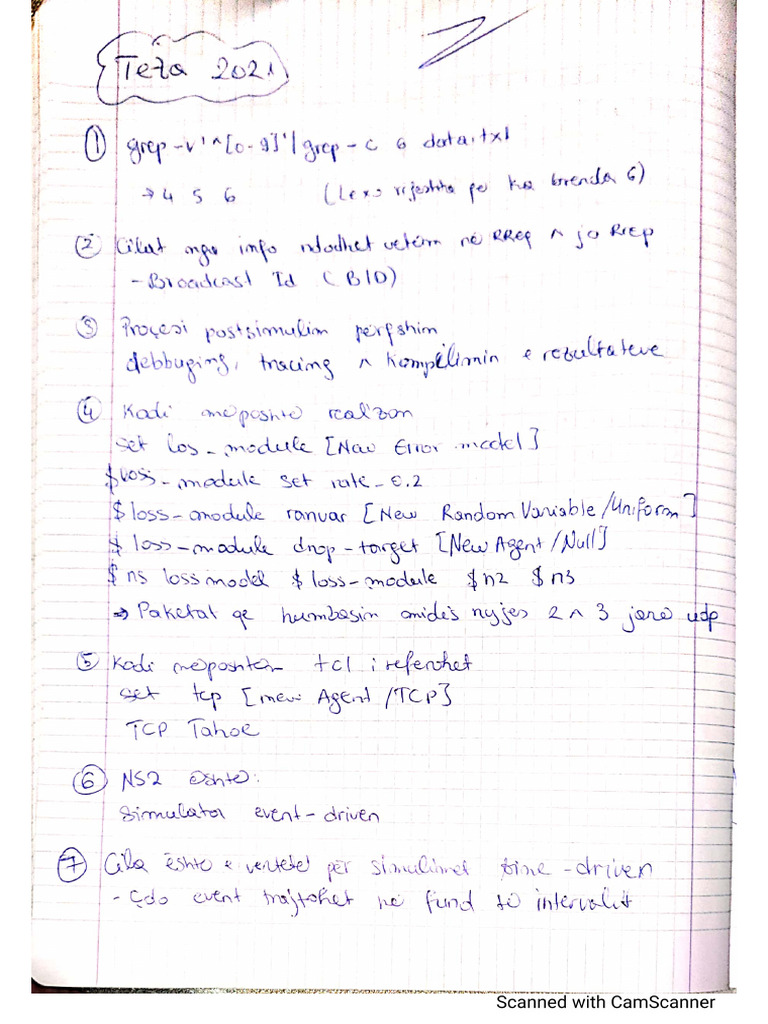 Teza 2021
① grep -v '^[0-9]' | grep -c 6 data.txt
→ 4 5 6 (Lexo rrjeshta qe ka brenda 6)
② Cilat nga info ndodhet vetëm në RReq ∧ jo Rrep
- Broadcast Id (BID)
③ Proçesi postsimulim përfshin
debbuging, tracing ∧ kompilimin e rezultateve
④ Kodi meposhte realizon
set los_module [New Error model]
$loss_module set rate_ 0.2
$loss_module ranvar [New Random Variable/Uniform]
$ loss_module drop-target [New Agent/Null]
$ns lossmodel $loss_module $n2 $n3
⇒ Paketat qe humbasin midis nyjes 2 ∧ 3 jane udp
⑤ Kodi meposhtem tcl i referohet
set tcp [new Agent/TCP]
TCP Tahoe
⑥ NS2 eshte:
simulator event-driven
⑦ Cila është e vertete për simulimet time-driven
- Çdo event trajtohet ne fund te intervalit
Scanned with CamScanner